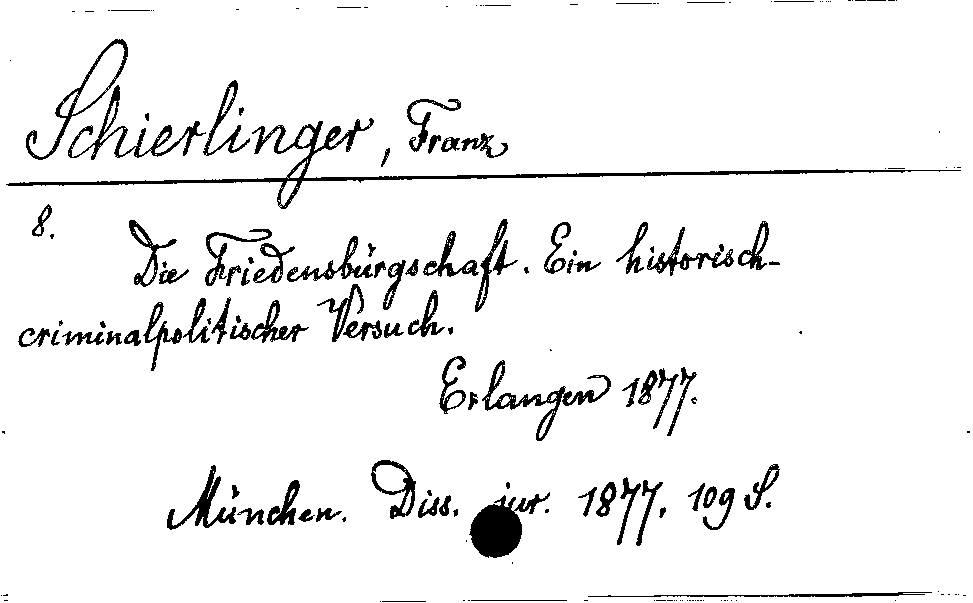 Schierlinger, Franz
8.
Die Friedensbürgschaft. Ein historisch-
criminalpolitischer Versuch.
Erlangen 1877.
München. Diss. jur. 1877. 109 S.